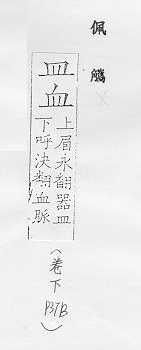 佩觿
皿血
上眉永翻器皿
下呼決翻血脈
(卷下P37B)